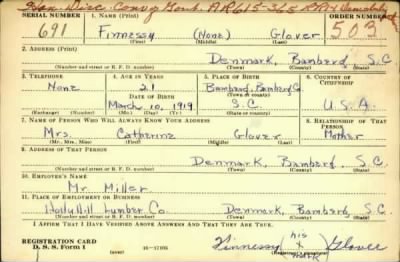 Hon. Disc. Convg Gour. AR615-365 RR4 Demobilz
SERIAL NUMBER 1. NAME (Print) ORDER NUMBER
691 Finnessy (None) Glover 503
(First) (Middle) (Last)
2. ADDRESS (Print)
Denmark, Bamberg, S.C.
(Number and street or R. F. D. number) (Town) (County) (State)
3. TELEPHONE 4. AGE IN YEARS 5. PLACE OF BIRTH 6. COUNTRY OF CITIZENSHIP
None 21 Bamberg, Bamberg Co.
DATE OF BIRTH (Town or county)
March 10, 1919 S.C. U.S.A.
(Exchange) (Number) (Mo.) (Day) (Yr.) (State or country)
7. NAME OF PERSON WHO WILL ALWAYS KNOW YOUR ADDRESS 8. RELATIONSHIP OF THAT PERSON
Mrs. Catherine Glover Mother
(Mr., Mrs., Miss) (First) (Middle) (Last)
9. ADDRESS OF THAT PERSON
Denmark, Bamberg, S.C.
(Number and street or R. F. D. number) (Town) (County) (State)
10. EMPLOYER'S NAME
Mr. Miller
11. PLACE OF EMPLOYMENT OR BUSINESS
Holly Hill Lumber Co. Denmark, Bamberg, S.C.
(Number and street or R. F. D. number) (Town) (County) (State)
I AFFIRM THAT I HAVE VERIFIED ABOVE ANSWERS AND THAT THEY ARE TRUE.
REGISTRATION CARD
D. S. S. Form 1 (over) 16—17105
Finnessy his X mark Glover
(Registrant's signature)